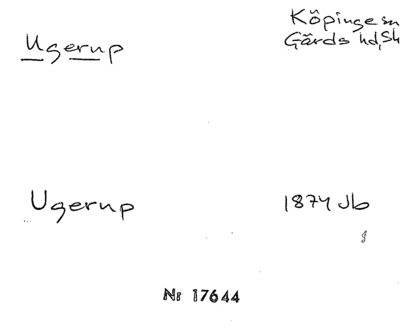 Ugerup
Köpinge sn
Gärds hd, Sk
Ugerup
1874 Jb
Nr 17644